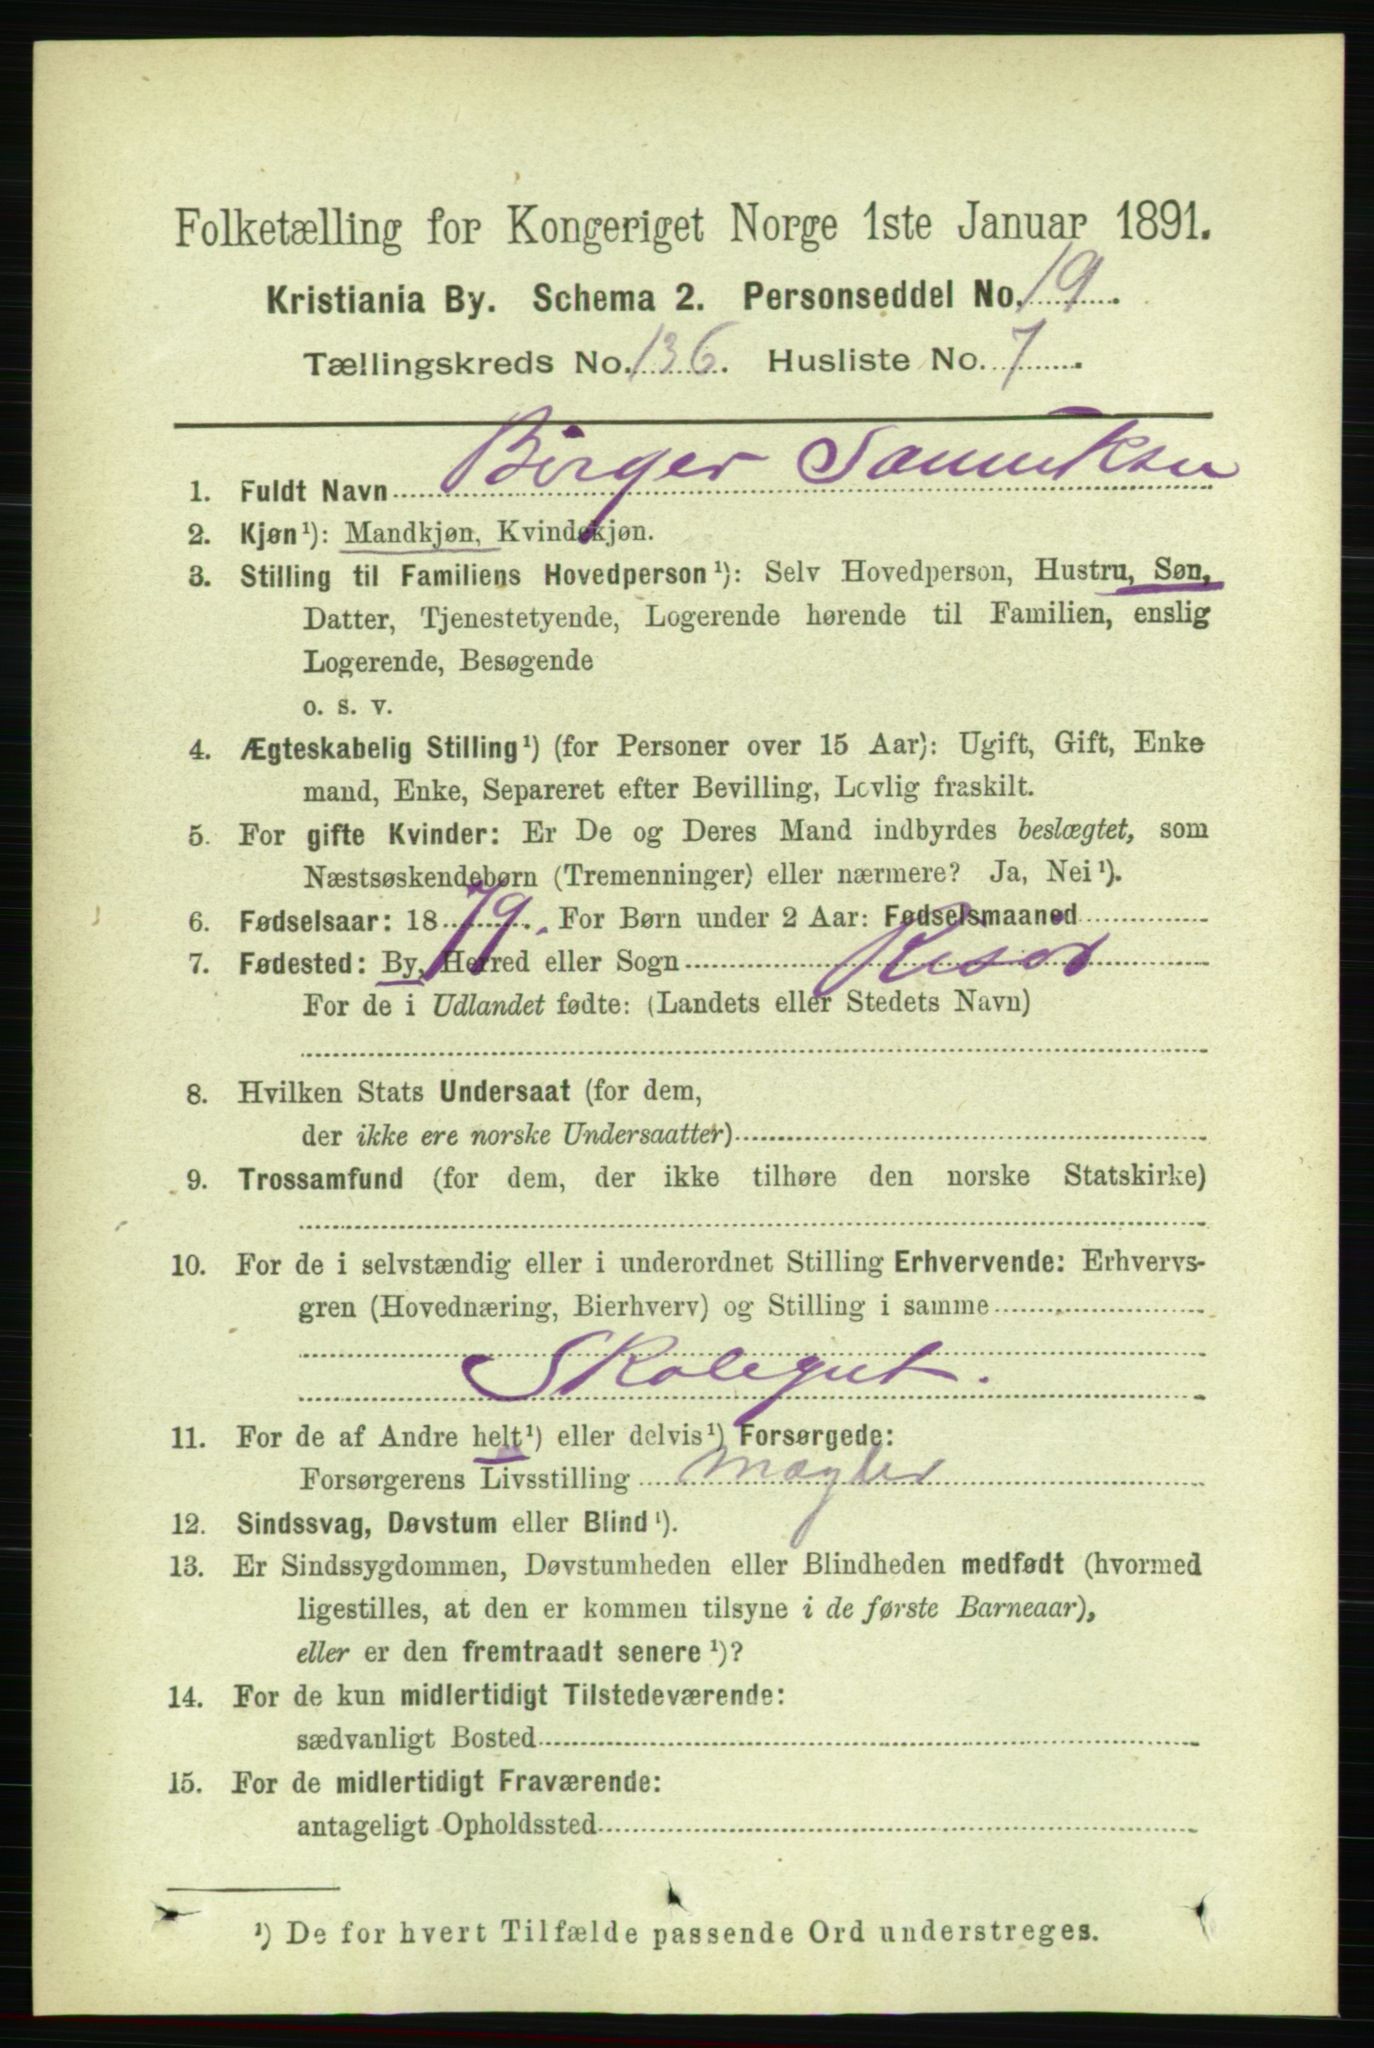 Folketælling for Kongeriget Norge 1ste Januar 1891.
Kristiania By. Schema 2. Personseddel No. 19.
Tællingskreds No. 136. Husliste No. 7.
1. Fuldt Navn Birger
2. Kjøn¹): Mandkjøn, Kvindekjøn.
3. Stilling til Familiens Hovedperson¹): Selv Hovedperson, Hustru, Søn,
Datter, Tjenestetyende, Logerende hørende til Familien, enslig
Logerende, Besøgende
o. s. v.
4. Ægteskabelig Stilling¹) (for Personer over 15 Aar): Ugift, Gift, Enke
mand, Enke, Separeret efter Bevilling, Lovlig fraskilt.
5. For gifte Kvinder: Er De og Deres Mand indbyrdes beslægtet, som
Næstsøskendebørn (Tremenninger) eller nærmere? Ja, Nei¹).
6. Fødselsaar: 1879. For Børn under 2 Aar: Fødselsmaaned
7. Fødested: By, Herred eller Sogn Risør
For de i Udlandet fødte: (Landets eller Stedets Navn)
8. Hvilken Stats Undersaat (for dem,
der ikke ere norske Undersaatter)
9. Trossamfund (for dem, der ikke tilhøre den norske Statskirke)
10. For de i selvstændig eller i underordnet Stilling Erhvervende: Erhvervs-
gren (Hovednæring, Bierhverv) og Stilling i samme
Skolegut.
11. For de af Andre helt¹) eller delvis¹) Forsørgede:
Forsørgerens Livsstilling Mægler
12. Sindssvag, Døvstum eller Blind¹).
13. Er Sindssygdommen, Døvstumheden eller Blindheden medfødt (hvormed
ligestilles, at den er kommen tilsyne i de første Barneaar),
eller er den fremtraadt senere¹)?
14. For de kun midlertidigt Tilstedeværende:
sædvanligt Bosted
15. For de midlertidigt Fraværende:
antageligt Opholdssted
¹) De for hvert Tilfælde passende Ord understreges.